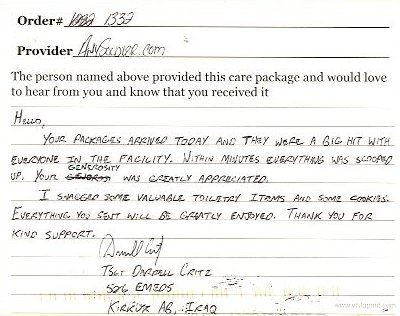 Order# 1332 1332
Provider AnySoldier.com
The person named above provided this care package and would love
to hear from you and know that you received it
Hello,
Your packages arrived today and they were a big hit with
everyone in the facility. Within minutes everything was scooped
up. Your generosity was greatly appreciated.
I snagged some valuable toiletry items and some cookies.
Everything you sent will be greatly enjoyed. Thank you for
kind support.
TSgt Darrell Critz
506 EMEDS
Kirkuk AB, Iraq